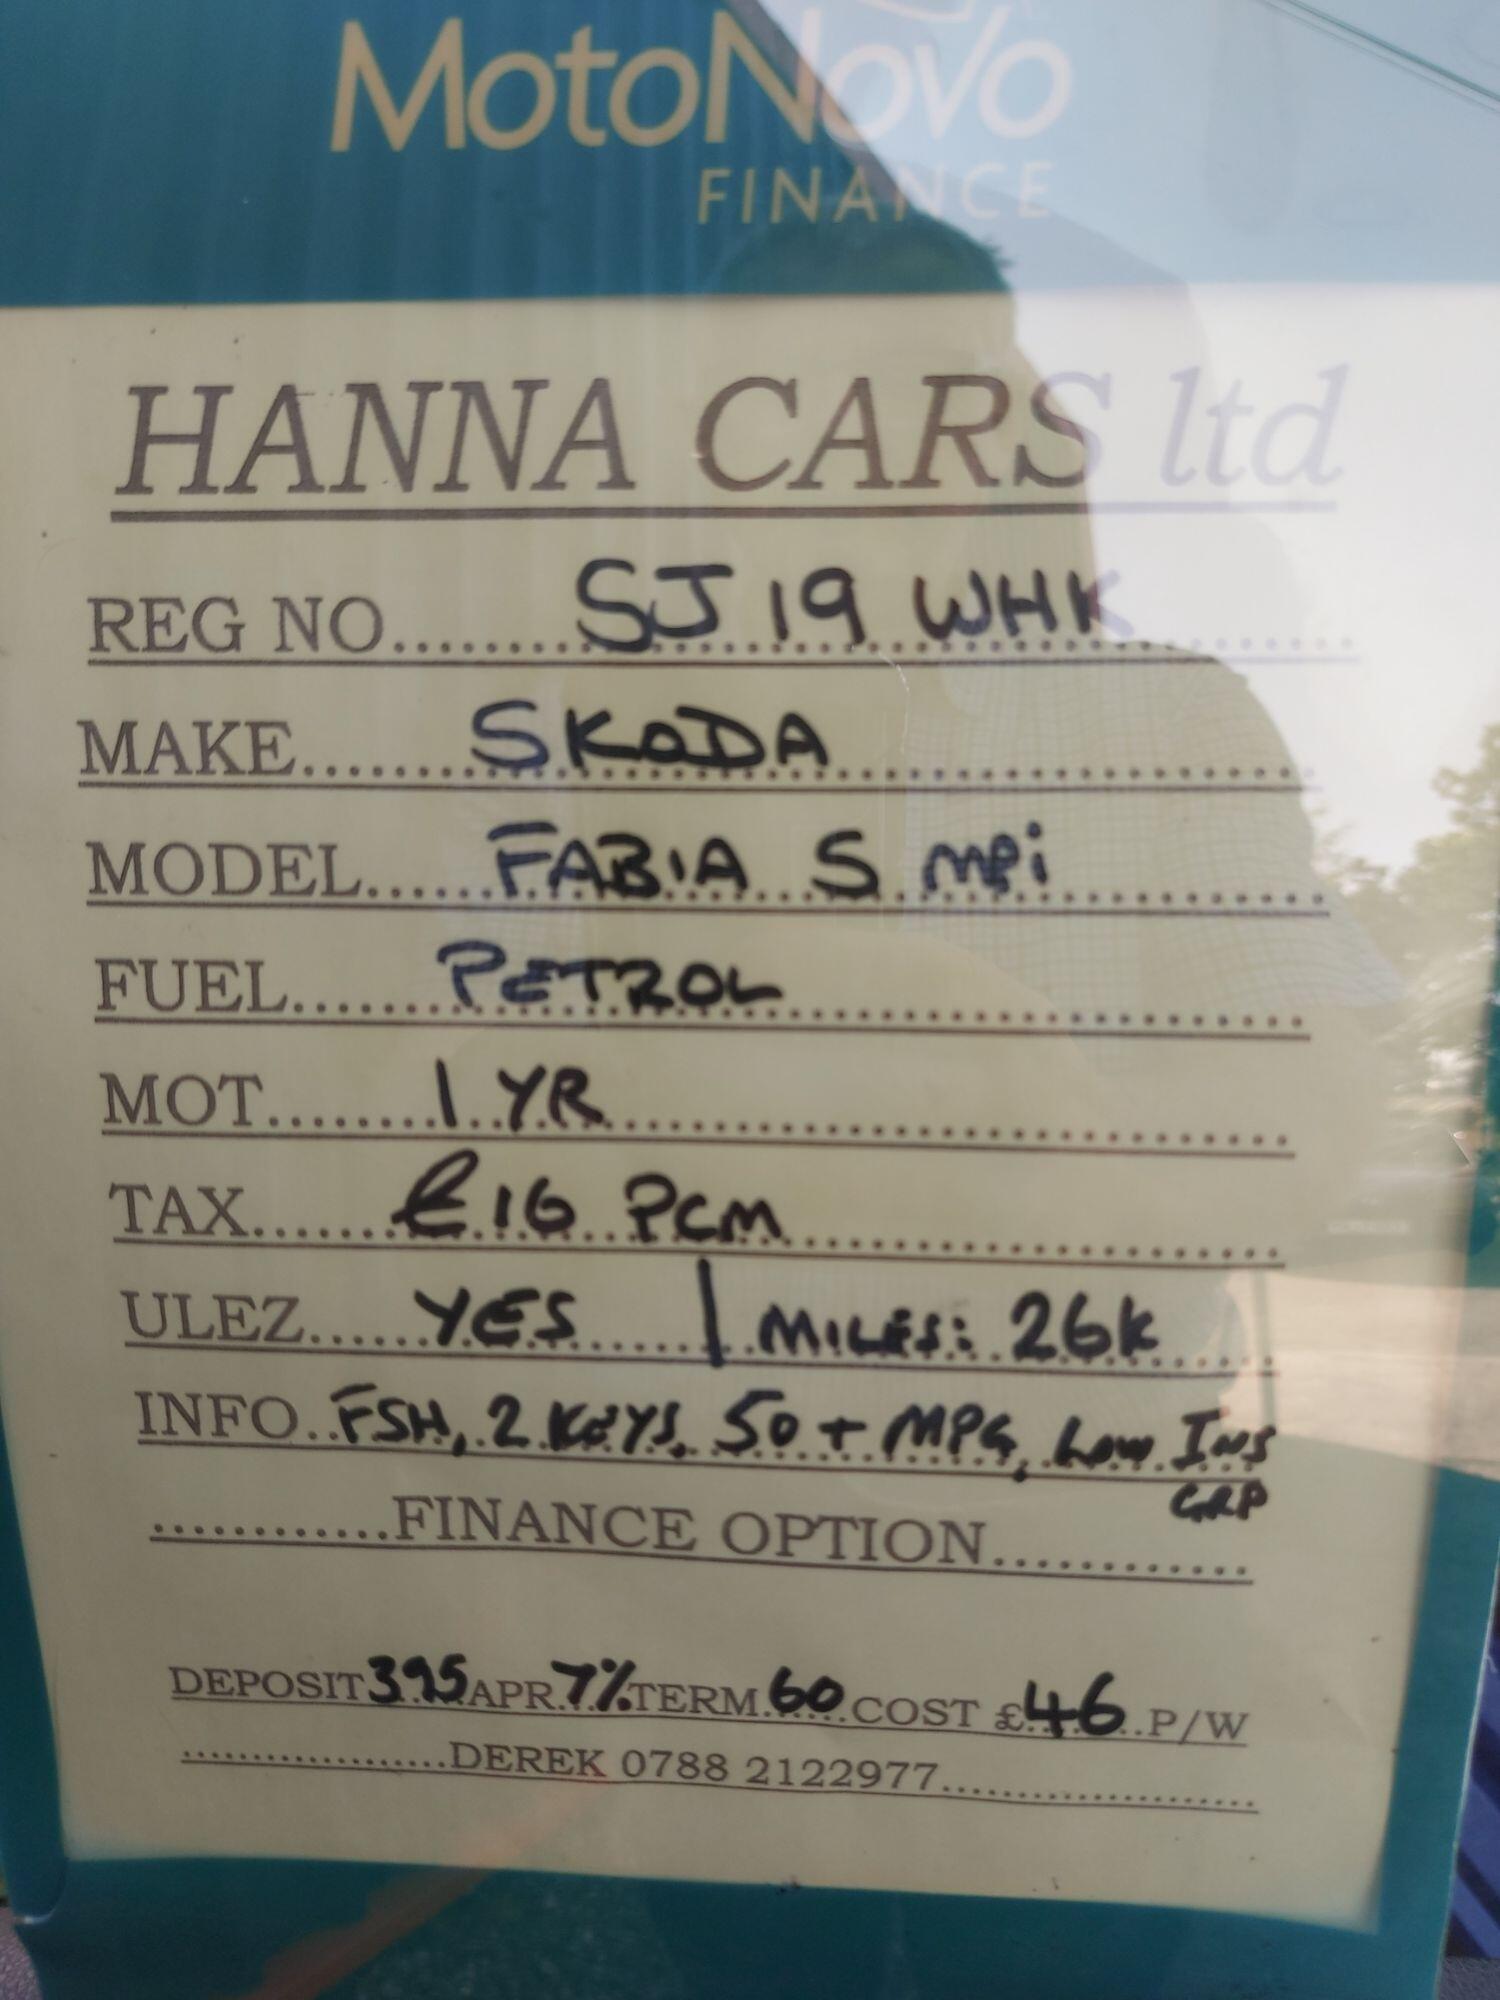 MotoNovo
FINANCE
HANNA CARS ltd
REG NO.......SJ 19 WHK.......
MAKE.......SKODA.......
MODEL.......FABIA S MPi.......
FUEL.......PETROL.......
MOT.......1 YR.......
TAX.......£16 PCM.......
ULEZ......YES......| MILES: 26K......
INFO..FSH, 2 KEYS, 50+ MPG, LOW INS
GRP
............FINANCE OPTION............
DEPOSIT 395 APR 7% TERM 60 COST £46 P/W
..................DEREK 0788 2122977......................